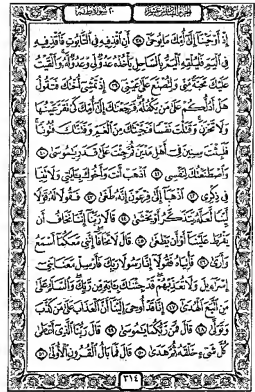 الجزء السادس عشر ٢٠ سورة طه
إِذْ أَوْحَيْنَا إِلَىٰ أُمِّكَ مَا يُوحَىٰ ٣٨ أَنِ اقْذِفِيهِ فِي التَّابُوتِ فَاقْذِفِيهِ
فِي الْيَمِّ فَلْيُلْقِهِ الْيَمُّ بِالسَّاحِلِ يَأْخُذْهُ عَدُوٌّ لِّي وَعَدُوٌّ لَّهُ وَأَلْقَيْتُ
عَلَيْكَ مَحَبَّةً مِّنِّي وَلِتُصْنَعَ عَلَىٰ عَيْنِي ٣٩ إِذْ تَمْشِي أُخْتُكَ فَتَقُولُ
هَلْ أَدُلُّكُمْ عَلَىٰ مَن يَكْفُلُهُ فَرَجَعْنَاكَ إِلَىٰ أُمِّكَ كَيْ تَقَرَّ عَيْنُهَا
وَلَا تَحْزَنَ وَقَتَلْتَ نَفْسًا فَنَجَّيْنَاكَ مِنَ الْغَمِّ وَفَتَنَّاكَ فُتُونًا
فَلَبِثْتَ سِنِينَ فِي أَهْلِ مَدْيَنَ ثُمَّ جِئْتَ عَلَىٰ قَدَرٍ يَٰمُوسَىٰ ٤٠
وَاصْطَنَعْتُكَ لِنَفْسِي ٤١ اذْهَبْ أَنتَ وَأَخُوكَ بِـَٔايَٰتِي وَلَا تَنِيَا
فِي ذِكْرِي ٤٢ اذْهَبَا إِلَىٰ فِرْعَوْنَ إِنَّهُ طَغَىٰ ٤٣ فَقُولَا لَهُ قَوْلًا
لَّيِّنًا لَّعَلَّهُ يَتَذَكَّرُ أَوْ يَخْشَىٰ ٤٤ قَالَا رَبَّنَا إِنَّنَا نَخَافُ أَن
يَفْرُطَ عَلَيْنَا أَوْ أَن يَطْغَىٰ ٤٥ قَالَ لَا تَخَافَا إِنَّنِي مَعَكُمَا أَسْمَعُ
وَأَرَىٰ ٤٦ فَأْتِيَاهُ فَقُولَا إِنَّا رَسُولَا رَبِّكَ فَأَرْسِلْ مَعَنَا بَنِي
إِسْرَٰٓءِيلَ وَلَا تُعَذِّبْهُمْ قَدْ جِئْنَاكَ بِـَٔايَةٍ مِّن رَّبِّكَ وَالسَّلَٰمُ عَلَىٰ
مَنِ اتَّبَعَ الْهُدَىٰ ٤٧ إِنَّا قَدْ أُوحِيَ إِلَيْنَا أَنَّ الْعَذَابَ عَلَىٰ مَن كَذَّبَ
وَتَوَلَّىٰ ٤٨ قَالَ فَمَن رَّبُّكُمَا يَٰمُوسَىٰ ٤٩ قَالَ رَبُّنَا الَّذِي أَعْطَىٰ
كُلَّ شَيْءٍ خَلْقَهُ ثُمَّ هَدَىٰ ٥٠ قَالَ فَمَا بَالُ الْقُرُونِ الْأُولَىٰ ٥١
٣١٤